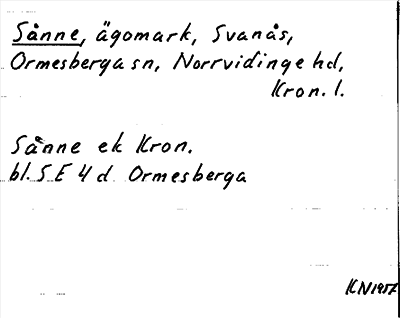 Sånne, ägomark, Svanås,
Ormesberga sn, Norrvidinge hd,
Kron. l.
Sånne ek Kron.
bl. 5 E 4 d Ormesberga
KN1957